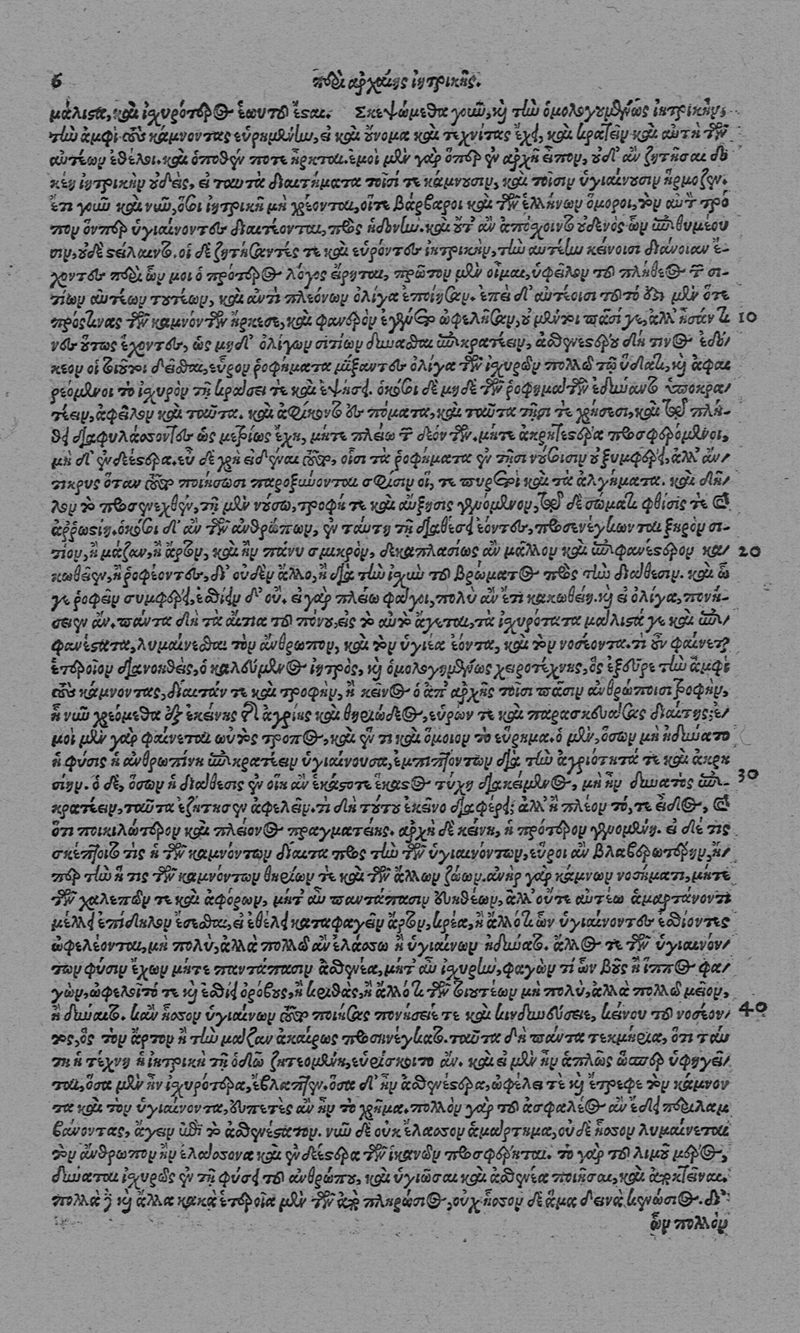 6 περὶ ἀρχαίης ἰητρικῆς.
μάλιστα, καὶ ἰχυρότερος ἑαυτοῦ ἔσται. Σκεψώμεθα γοῦν, καὶ τὴν ὁμολογουμένως ἰητρικὴν,
τὴν ἀμφὶ τοὺς κάμνοντας εὑρημένην, εἰ καὶ οὔνομα καὶ τεχνίτας ἔχει, καὶ κρατεῖν καὶ αὐτὴ τῶν
αὐτέων ἐθέλει. καὶ ὁπόθεν ποτε ἦρκται. ἐμοὶ μὲν γὰρ ὅπερ ἐν ἀρχῇ εἶπον, οὐδ' ἂν ζητῆσαι δο
κέῃ ἰητρικὴν οὐδεὶς, εἰ ταυτὰ διαιτήματα τοῖσί τε κάμνουσιν, καὶ τοῖσιν ὑγιαίνουσιν ἥρμοζεν.
ἔτι γοῦν καὶ νῦν, ὅσοι ἰητρικῇ μὴ χρέονται, οἵτε βάρβαροι καὶ τῶν ἑλλήνων ὅμοροι, τὸν αὐτὸν τρό
πον ὅνπερ ὑγιαίνοντες διαιτέονται, πρὸς ἡδονὴν. καὶ οὔτ' ἂν ἀπόσχοιντο οὐδενὸς ὧν ἐπιθυμέου
σιν, οὐδὲ στείλαιντο. οἱ δὲ ζητήσαντές τε καὶ εὑρόντες ἰητρικὴν, τὴν αὐτέην κείνοισι διάνοιαν ἔ-
χοντες περὶ ὧν μοι ὁ πρότερος λόγος εἴρηται, πρῶτον μὲν οἶμαι, ὑφεῖλον τοῦ πλήθεος τῶν σι-
τίων αὐτέων τουτέων, καὶ ἀντὶ πλεόνων ὀλίγα ἐποίησαν. ἐπεὶ δ' αὐτέοισι τοῦτο ἔστι μὲν ὅτε
πρός τινας τῶν καμνόντων ἤρκεσε, καὶ φανερὸν ἐγένετο ὠφελῆσαν, οὐ μέντοι πᾶσί γε, ἀλλ' ἦσάν τι 10
νες οὕτως ἔχοντες, ὡς μηδ' ὀλίγων σιτίων δύνασθαι ἐπικρατεῖν, ἀσθενεστέρου δή τινος ἐδό/
κεον οἱ τοιοῦτοι δεῖσθαι, εὗρον ῥοφήματα μίξαντες ὀλίγα τῶν ἰχυρῶν πολλῷ τῷ ὕδατι, καὶ ἀφαι
ρεόμενοι τὸ ἰχυρὸν τῇ κράσει τε καὶ ἑψήσει. ὁκόσοι δὲ μηδὲ τῶν ῥοφημάτων ἐδύναντο ἐπικρα/
τεῖν, ἀφεῖλον καὶ ταῦτα. καὶ ἀφίκοντο ἐς πόματα, καὶ ταῦτα τῇσί τε κρήσεσι, καὶ τῷ πλή-
θει διαφυλάσσοντες ὡς μετρίως ἔχῃ, μήτε πλείω τῶν δεόντων. μήτε ἀκρητέστερα προσφερόμενοι,
μὴ δ' ἐνδεέστερα. εὖ δὲ χρὴ εἰδέναι τοῦτο, οἷσι τὰ ῥοφήματα ἐν τῇσι νούσοισιν οὐ ξυμφέρει, ἀλλ' ἄν/
τικρυς ὅταν τοῦτο ποιήσωσι παροξύνονται σφίσιν οἵ, τε πυρετοὶ καὶ τὰ ἀλγήματα. καὶ δῆ/
λον τὸ προσενεχθὲν, τῇ μὲν νούσῳ, τροφή τε καὶ αὔξησις γενόμενον, τῷ δὲ σώματι φθίσις τε καὶ
ἀῤῥωστίη. ὁκόσοι δ' ἂν τῶν ἀνθρώπων, ἐν ταύτῃ τῇ διαθέσει ἐόντες, προσενέγκωνται ξηρὸν σι-
τίον, ἢ μάζαν, ἢ ἄρτον, καὶ ἢν πάνυ σμικρὸν, δεκαπλασίως ἂν μᾶλλον καὶ ἐπιφανέστερον κα/ 20
κωθεῖεν, ἢ ῥοφέοντες, δι' οὐδὲν ἄλλο, ἢ διὰ τὴν ἰχὺν τοῦ βρώματος πρὸς τὴν διάθεσιν. καὶ ᾧ
γε ῥοφεῖν συμφέρει, ἐσθίειν δ' οὔ. εἰ γὰρ πλείω φάγοι, πολὺ ἂν ἔτι κακωθείη. καὶ εἰ ὀλίγα, πονή-
σειεν ἄν. πάντα δὴ τὰ αἴτια τοῦ πόνου, εἰς τὸ αὐτὸ ἄγεται, τὰ ἰχυρότατα μάλιστά γε καὶ ἐπι/
φανέστατα, λυμαίνεσθαι τὸν ἄνθρωπον, καὶ τὸν ὑγιέα ἐόντα, καὶ τὸν νοσέοντα. τί οὖν φαίνεται
ἑτεροῖον διανοηθεὶς, ὁ καλούμενος ἰητρὸς, καὶ ὁμολογημένως χειροτέχνης, ὃς ἐξεῦρε τὴν ἀμφὶ
τοὺς κάμνοντας, δίαιτάν τε καὶ τροφὴν, ἢ κεῖνος ὁ ἀπ' ἀρχῆς τοῖσι πᾶσιν ἀνθρώποισι τροφὴν,
ᾗ νῦν χρεόμεθα ἐξ ἐκείνης τῆς ἀγρίης καὶ θηριώδεος, εὑρών τε καὶ παρασκευάσας διαίτης; ἐ/
μοὶ μὲν γὰρ φαίνεται ωὑτὸς τρόπος, καὶ ἕν τι καὶ ὅμοιον τὸ εὕρημα. ὁ μὲν, ὅσων μὴ ἠδύνατο
ἡ φύσις ἡ ἀνθρωπίνη ἐπικρατεῖν ὑγιαίνουσα, ἐμπιπτόντων διὰ τὴν ἀγριότητά τε καὶ ἀκρη
σίην. ὁ δὲ, ὅσων ἡ διάθεσις ἐν οἵῃ ἂν ἑκάστοτε ἕκαστος τύχῃ διακείμενος, μὴ ἦν δυνατὸς ἐπι- 30
κρατεῖν, ταῦτα ἐζήτησεν ἀφελεῖν. τί δὴ τοῦτο ἐκεῖνο διαφέρει; ἀλλ' ἢ πλέον τό, τε εἶδος, καὶ
ὅτι ποικιλώτερον καὶ πλείονος πραγματείης. ἀρχὴ δὲ κείνη, ἡ πρότερον γενομένη. εἰ δέ τις
σκέπτοιτο τὰς ἡ τῶν καμνόντων δίαιτα πρὸς τὴν τῶν ὑγιαινόντων, εὕροι ἂν βλαβερωτέρην, ἤ/
περ τὴν ἥ τις τῶν καμνόντων θηρίων τε καὶ τῶν ἄλλων ζώων. ἀνὴρ γὰρ κάμνων νοσήματι, μήτε
τῶν χαλεπῶν τε καὶ ἀφόρων, μήτ' αὖ παντάπασιν εὐηθέων, ἀλλ' οὔτε αὐτέῳ ἁμαρτάνοντι
μέλλει ἐπίδηλον ἔσεσθαι, εἰ ἐθέλει καταφαγεῖν ἄρτον, κρέα, ἢ ἄλλό τι ὧν ὑγιαίνοντες ἐσθίοντες
ὠφελέονται, μὴ πολὺ, ἀλλὰ πολλῷ ἂν ἐλάσσω ἢ ὑγιαίνων ἠδύνατο. ἄλλος τε τῶν ὑγιαινόν/
των φύσιν ἔχων μήτε παντάπασιν ἀσθενέα, μήτ' αὖ ἰχυρὴν, φαγὼν τί ὧν βοῦς ἢ ἵππος φα/
γὼν, ὠφελοῖτό τε καὶ ἰσχύοι ὀρόβους, ἢ κριθὰς, ἢ ἄλλό τι τῶν τοιουτέων μὴ πολὺ, ἀλλὰ πολλῷ μεῖον,
ἢ δύναιτο. κἂν ἧσσον ὑγιαίνων τοῦτο ποιήσας πονήσειέ τε καὶ κινδυνεύσειε, κείνου τοῦ νοσέον/ 40
τος, ὃς τὸν ἄρτον ἢ τὴν μᾶζαν ἀκαίρως προσηνέγκατο. ταῦτα δὴ πάντα τεκμήρια, ὅτι ταύ
τῃ ἡ τέχνη ἡ ἰητρικὴ τῇ ὁδῷ ζητεομένη, εὑρίσκοιτο ἄν. καὶ εἰ μὲν ἦν ἁπλῶς ὥσπερ ὑφηγεῖ/
ται, ὅσα μὲν ἦν ἰχυρότερα, ἔβλαπτεν. ὅσα δ' ἦν ἀσθενέστερα, ὠφέλει τε καὶ ἔτρεφε τὸν κάμνον
τα καὶ τὸν ὑγιαίνοντα, εὐπετὲς ἂν ἦν τὸ χρῆμα. πολλὸν γὰρ τοῦ ἀσφαλέος ἂν ἔδει περιλαμ
βάνοντας, ἄγειν ἐπὶ τὸ ἀσθενέστατον. νῦν δὲ οὐκ ἔλασσον ἁμάρτημα, οὐδὲ ἧσσον λυμαίνεται
τὸν ἄνθρωπον ἢν ἐλάσσονα καὶ ἐνδεέστερα τῶν ἱκανῶν προσφέρηται. τὸ γὰρ τοῦ λιμοῦ μένος,
δύναται ἰχυρῶς ἐν τῇ φύσει τοῦ ἀνθρώπου, καὶ γυιῶσαι καὶ ἀσθενέα ποιῆσαι, καὶ ἀποκτεῖναι.
πολλὰ δὲ καὶ ἄλλα κακὰ ἑτεροῖα μὲν τῶν ἀπὸ πληρώσιος, οὐχ ἧσσον δὲ ἅμα δεινὰ κενώσιος. δι'
ὧν πολλὸν